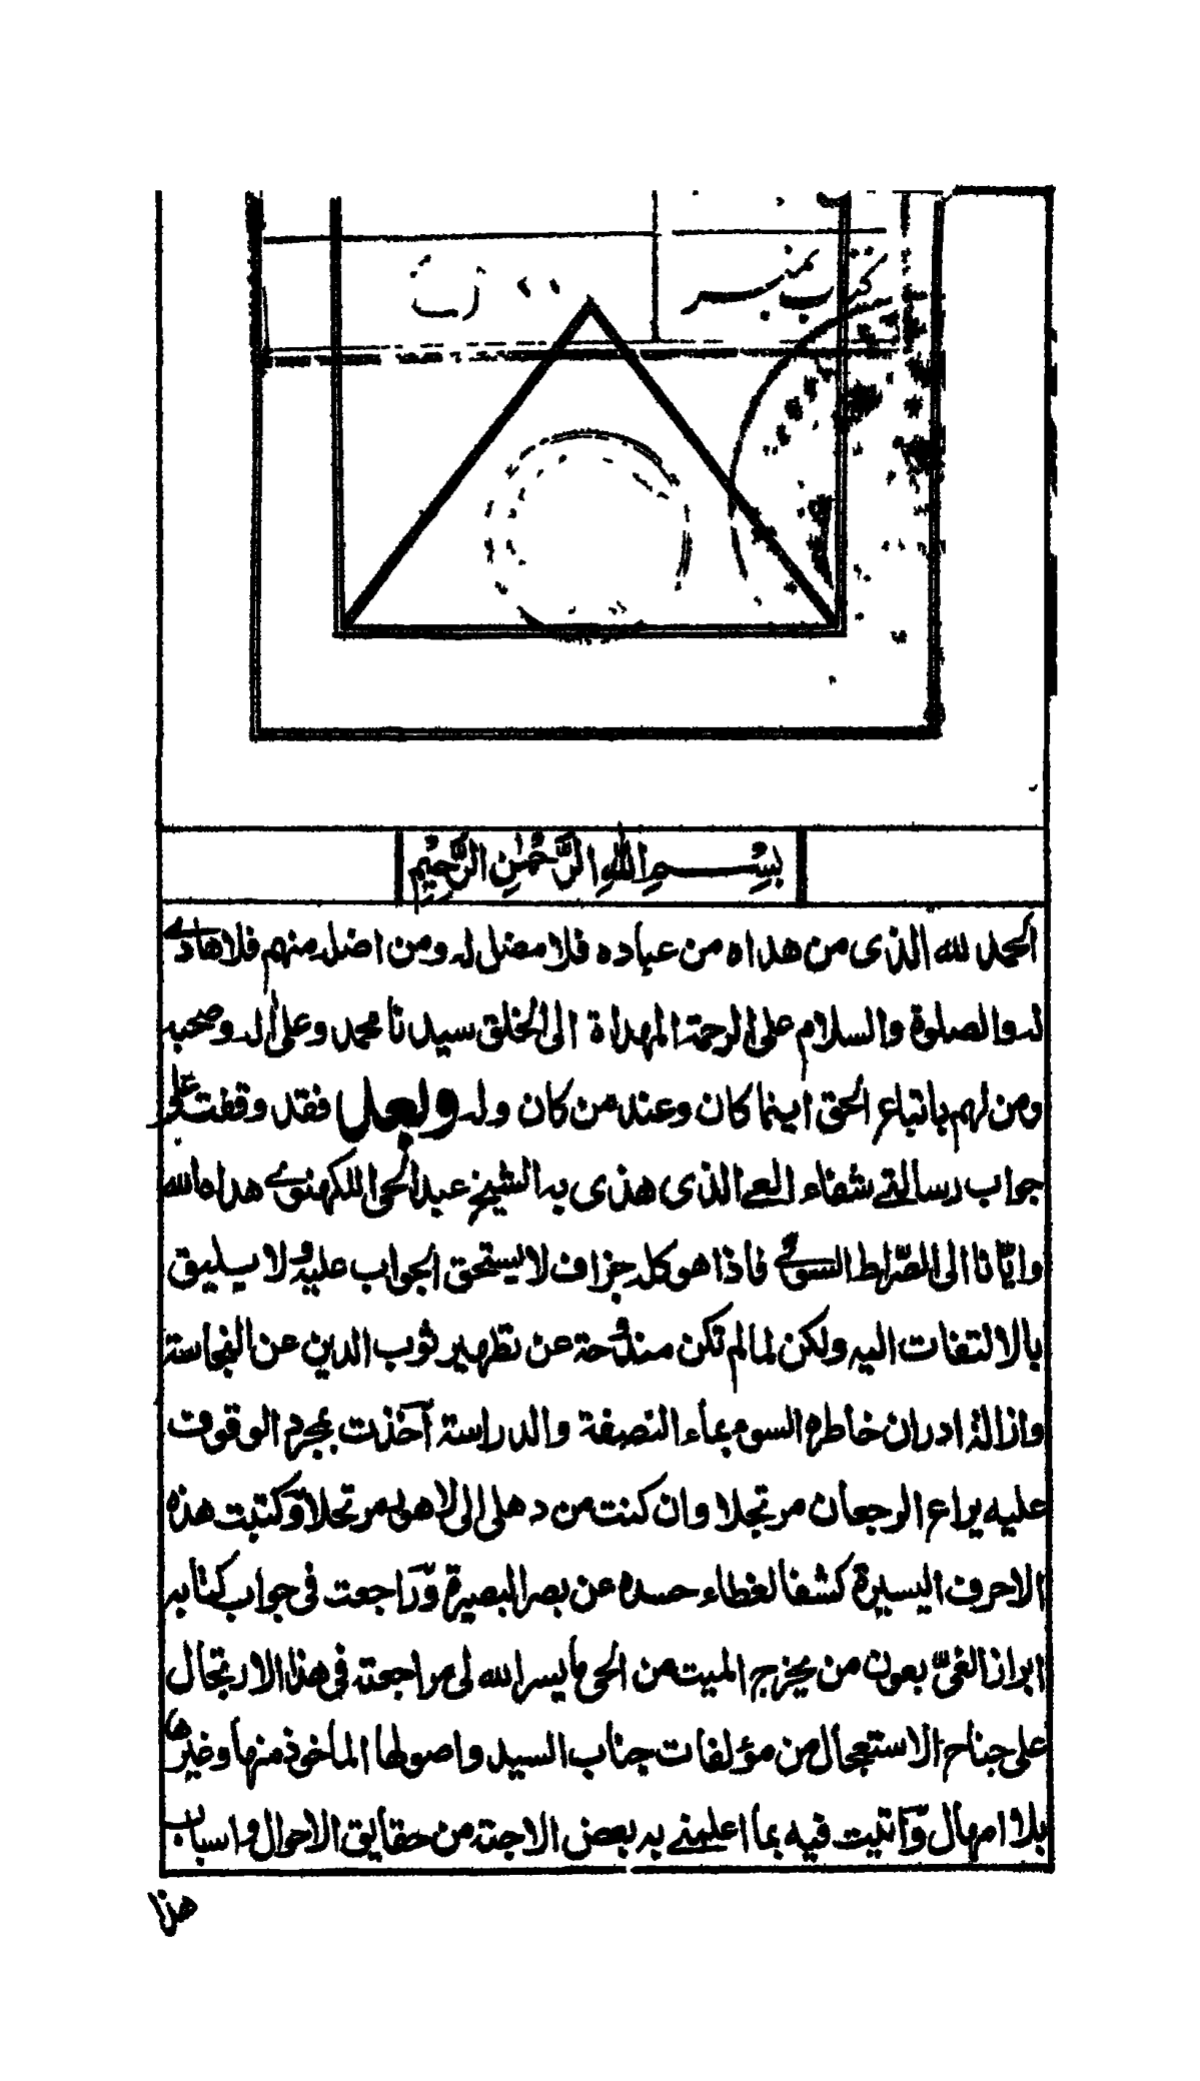 كتاب نمبر
بِسْمِ اللهِ الرَّحْمٰنِ الرَّحِيْمِ
الحمد لله الذى من هداه من عباده فلا مضل له ومن اضله منهم فلا هادے
له والصلوة والسلام على الرحمة المهداة الى الخلق سيدنا محمد وعلى اله وصحبه
ومن لهم باتباع الحق اينما كان وعند من كان وله وبعد فقد وقفت على
جواب رسالتے شفاء العے الذى هذى به الشيخ عبد الحى اللكهنوے هداه الله
وايّانا الى الصّراط السوىّ فاذا هو كله جزاف لا يستحق الجواب عليه ولا يليق
بالالتفات اليه ولكن لما لم تكن مندوحة عن تطهير ثوب الدين عن النجاسة
وازالة ادران خاطره السوء بماء النصفة والدراسة آخذت بمجرد الوقوف
عليه يراع الرجعان مرتجلا وان كنت من دهلى الى لاهور مرتحلا وّكتبت هذه
الاحرف اليسيرة كشفا لغطاء حسده عن بصر البصيرة وّراجعت فى جواب كتابه
ابراز الغىّ بعون من يخرج الميت من الحى ما يسر الله لى مراجعته فى هذا الارتجال
على جناح الاستعجال من مؤلفات جناب السيد واصولها الماخوذ منها وغيرها
بلا امهال وّاتيت فيه بما اعلمنے به بعض الاجتة من حقايق الاحوال واسباب
هذا